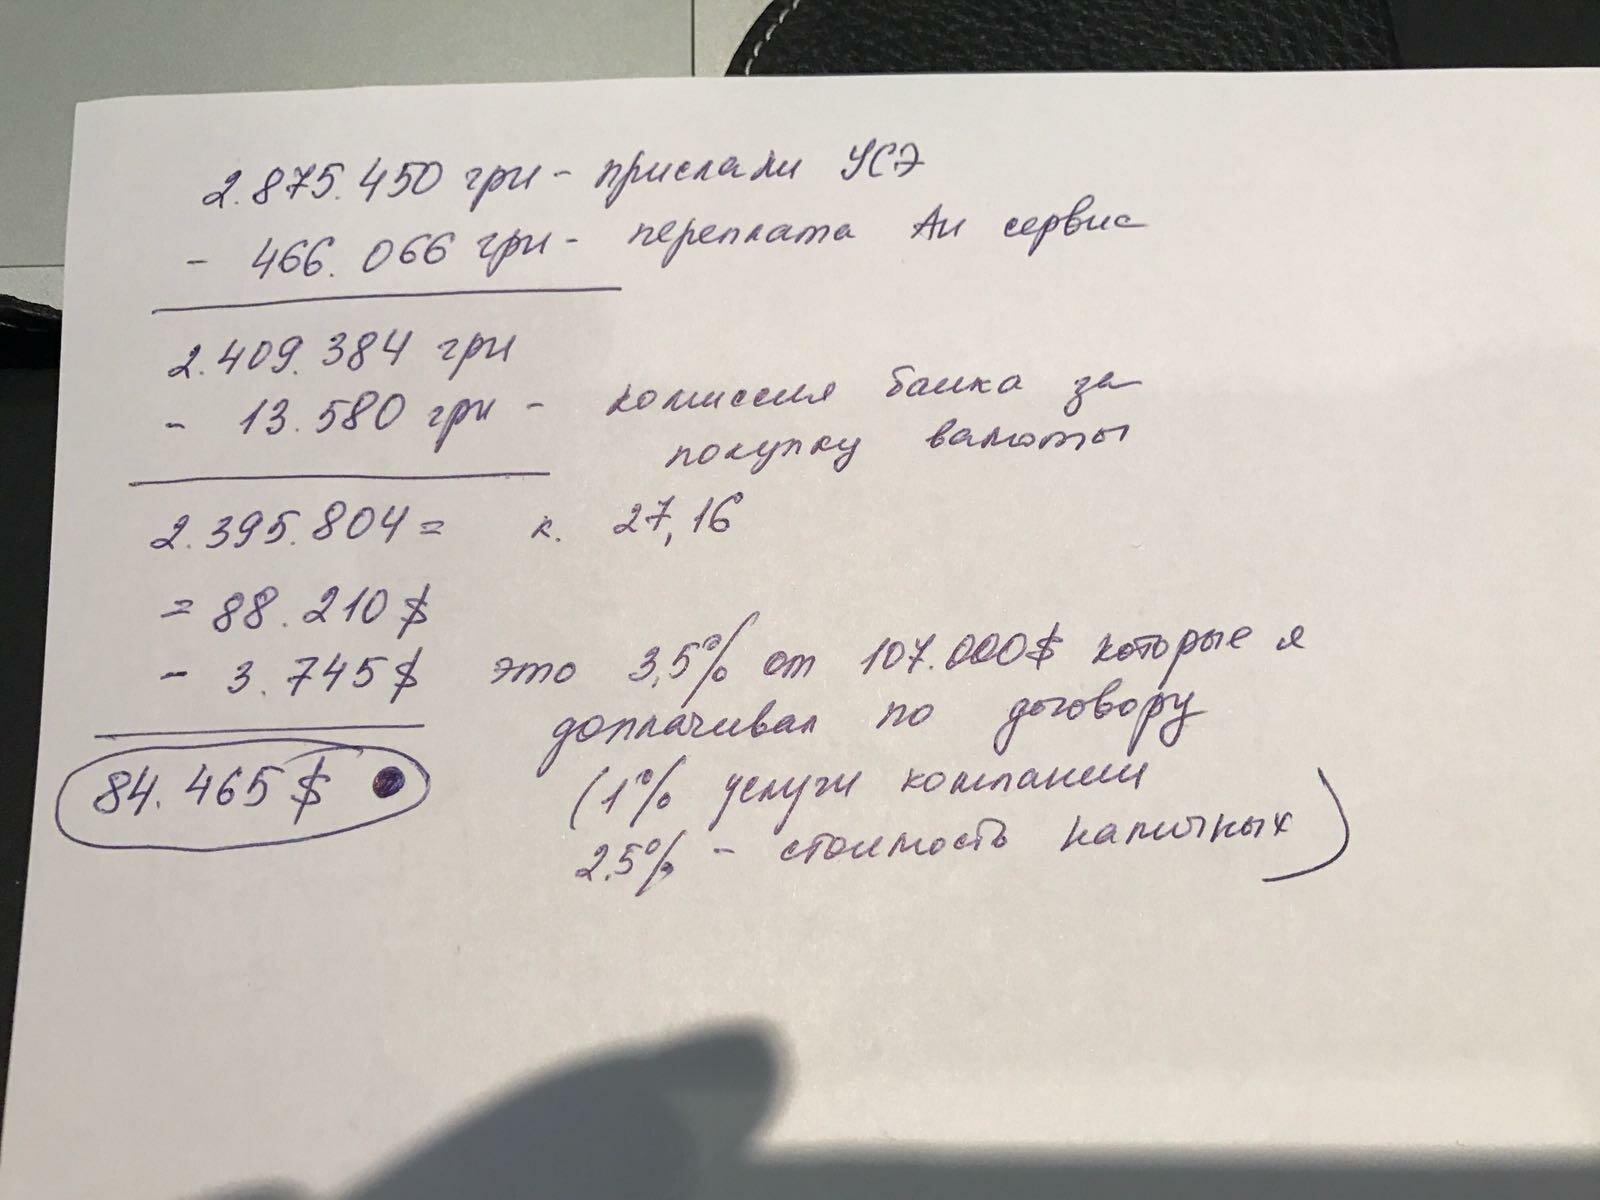 2.875.450 грн - прислали УСЭ
- 466.066 грн - переплата Аи сервис
2.409.384 грн
- 13.580 грн - комиссия банка за
покупку валюты
2.395.804 = к. 27,16
= 88.210 $
- 3.745 $ это 3,5% от 107.000$ которые я
доплачивал по договору
84.465 $
(1% услуги компании
2.5% - стоимость наличных)